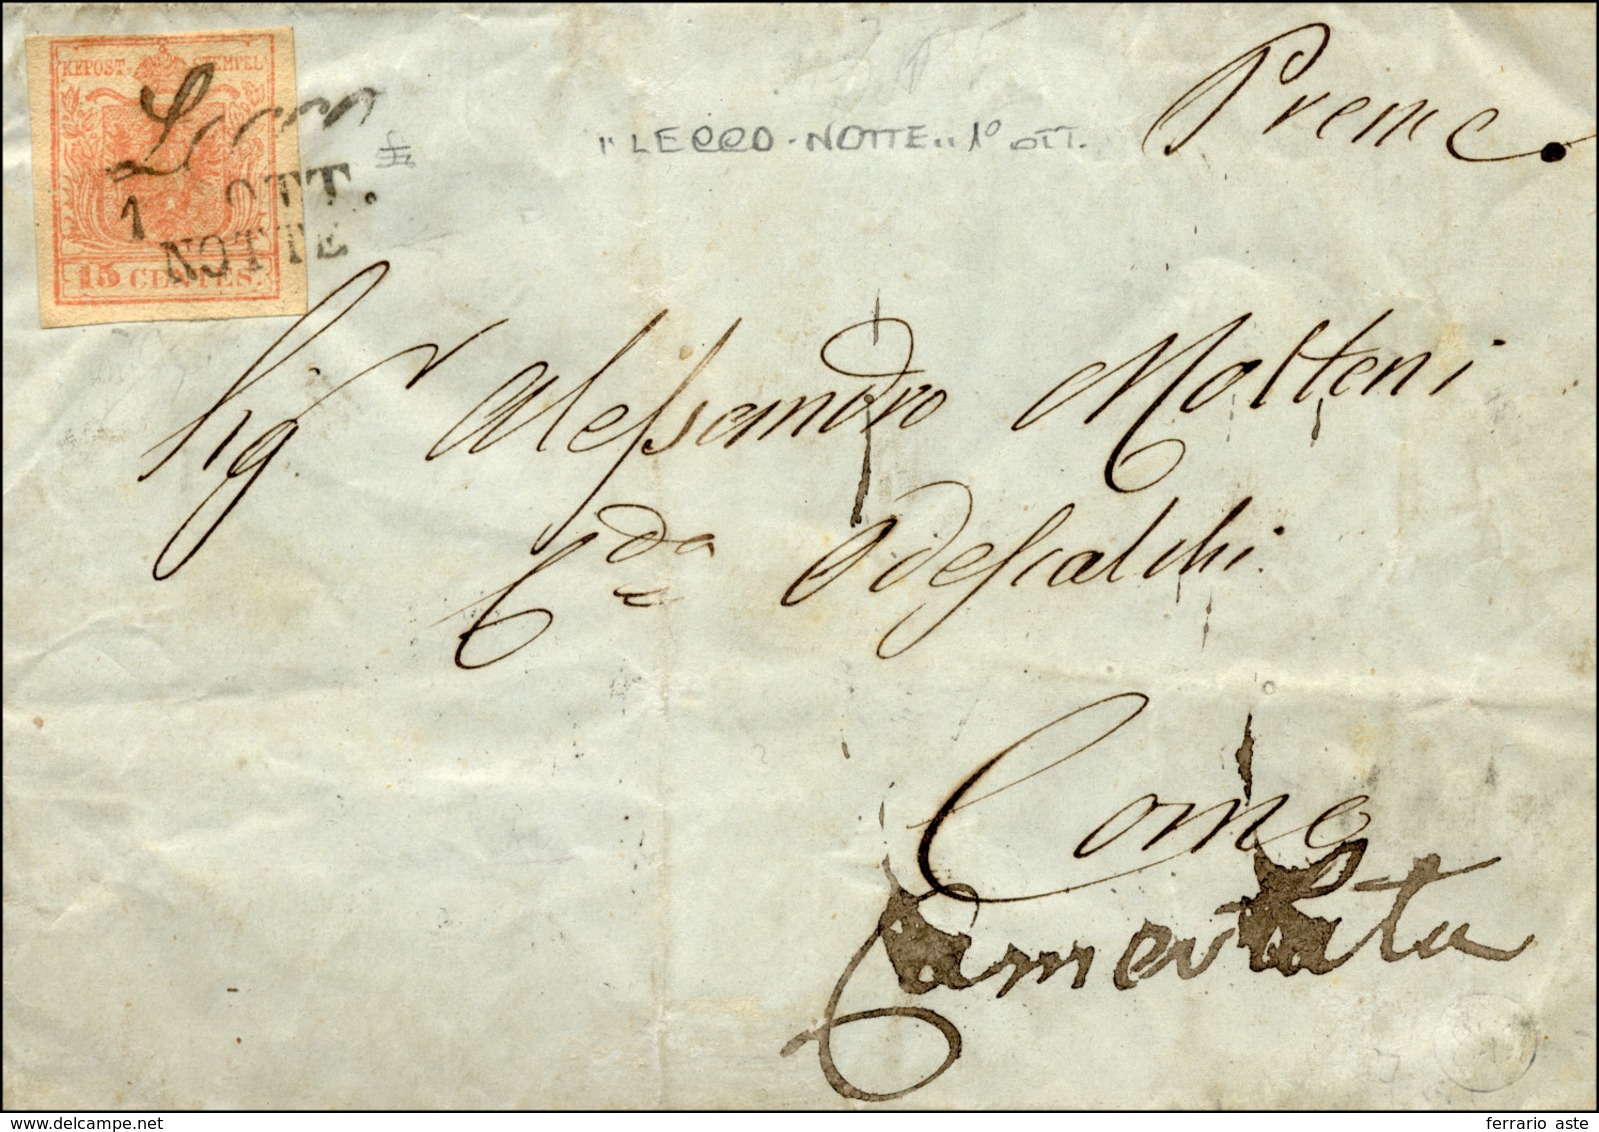 KKPOST-STEMPEL
Lecco
1 OTT.
NOTTE
15 CENTES.
"LECCO - NOTTE" 1° OTT.
Preme.
Sig.r Alessandro Molteni
C.da Odescalchi
Como
Camerlata
ferrario aste